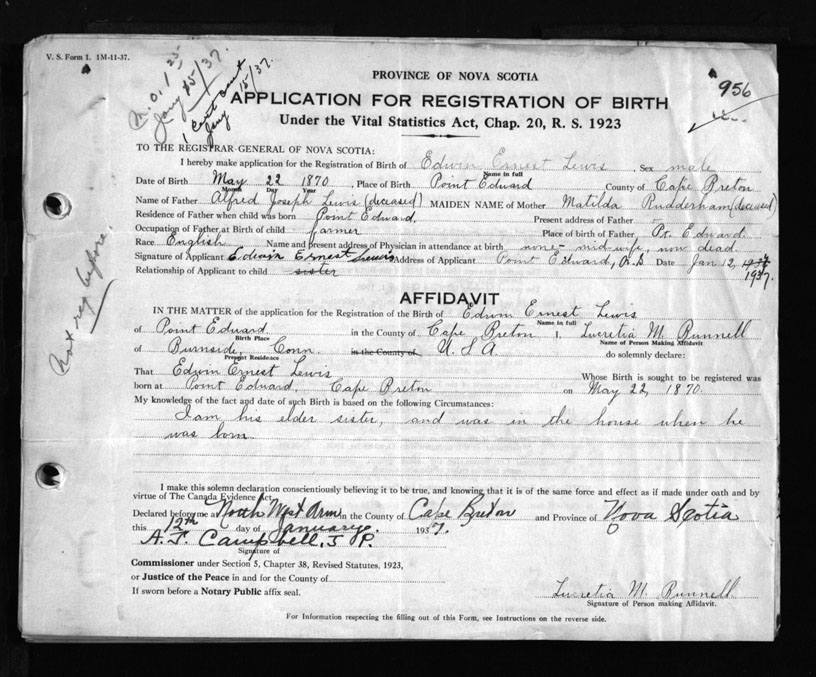 V. S. Form 1. 1M-11-37.
M.O. 1 25
Jany 15/37.
1 Cert sent
Jany 15/37.
956
PROVINCE OF NOVA SCOTIA
APPLICATION FOR REGISTRATION OF BIRTH
Under the Vital Statistics Act, Chap. 20, R. S. 1923
TO THE REGISTRAR-GENERAL OF NOVA SCOTIA:
I hereby make application for the Registration of Birth of Edwin Ernest Lewis, Sex male
Name in full
Date of Birth May 22 1870, Place of Birth Point Edward County of Cape Breton
Month Day Year
Name of Father Alfred Joseph Lewis (deceased) MAIDEN NAME of Mother Matilda Rudderham (deceased)
Residence of Father when child was born Point Edward, Present address of Father –
Occupation of Father at Birth of child farmer Place of birth of Father Pt. Edward.
Race English Name and present address of Physician in attendance at birth none - mid-wife, now dead.
Signature of Applicant Edwin Ernest Lewis Address of Applicant Point Edward, N.S Date Jan 12, 1937.
Relationship of Applicant to child sister
Not reg before.
AFFIDAVIT
IN THE MATTER of the application for the Registration of the Birth of Edwin Ernest Lewis
Name in full
of Point Edward in the County of Cape Breton I, Lucretia M. Bunnell
Birth Place Name of Person Making Affidavit
of Burnside, Conn. in the County of U S A do solemnly declare:
Present Residence
That Edwin Ernest Lewis Whose Birth is sought to be registered was
born at Point Edward, Cape Breton on May 22, 1870.
My knowledge of the fact and date of such Birth is based on the following Circumstances:
I am his elder sister, and was in the house when he
was born
I make this solemn declaration conscientiously believing it to be true, and knowing that it is of the same force and effect as if made under oath and by
virtue of The Canada Evidence Act.
Declared before me at North West Arm in the County of Cape Breton and Province of Nova Scotia
this 12th day of January. 1937.
A. J. Campbell, J P.
Signature of
Commissioner under Section 5, Chapter 38, Revised Statutes, 1923,
or Justice of the Peace in and for the County of
If sworn before a Notary Public affix seal.
Lucretia M. Bunnell
Signature of Person making Affidavit.
For Information respecting the filling out of this Form, see Instructions on the reverse side.